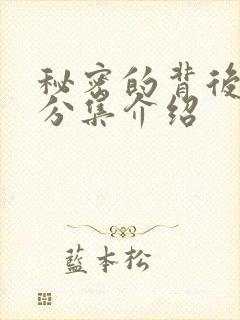 秘密的背後
分集介绍
藍本松